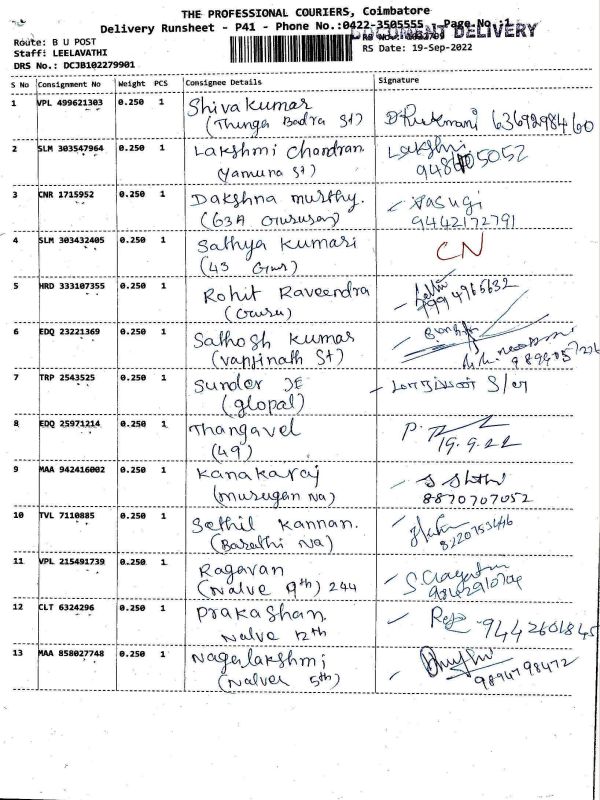 THE PROFESSIONAL COURIERS, Coimbatore
Delivery Runsheet - P41 - Phone No.:0422-3505555 Page No.:1
DOCUMENT DELIVERY
Route: B U POST
Staff: LEELAVATHI
RS Date: 19-Sep-2022
DRS No.: DCJB102279901
S No Consignment No Weight PCS Consignee Details Signature
1 VPL 499621303 0.250 1 Shivakumar
(Thunga Badra St) 6369298460
2 SLM 303547964 0.250 1 Lakshmi Chandran Lakshmi
(Yamuna St)
3 CNR 1715952 0.250 1 Dakshna murthy. Vasugi
(63A Gurususan) 9442172791
4 SLM 303432405 0.250 1 Sathya Kumari CN
(43 Gurs)
5 HRD 333107355 0.250 1 Rohit Raveendra
(Guru) 9994965632
6 EDQ 23221369 0.250 1 Sathosh Kumar
(Vanjinath St)
7 TRP 2543525 0.250 1 Sunder JE
(glopal)
8 EDQ 25971214 0.250 1 Thangavel P.
(49) 19.9.22
9 MAA 942416002 0.250 1 Kanakaraj
(Murugan Na) 8870707052
10 TVL 7110885 0.250 1 Sethil Kannan.
(Barathi Na)
11 VPL 215491739 0.250 1 Ragavan
(Nalve 9th) 244
12 CLT 6324296 0.250 1 Prakashan 9442601845
Nalve 12th
13 MAA 858027748 0.250 1 Nagalakshmi
(Nalver 5th) 9894798472